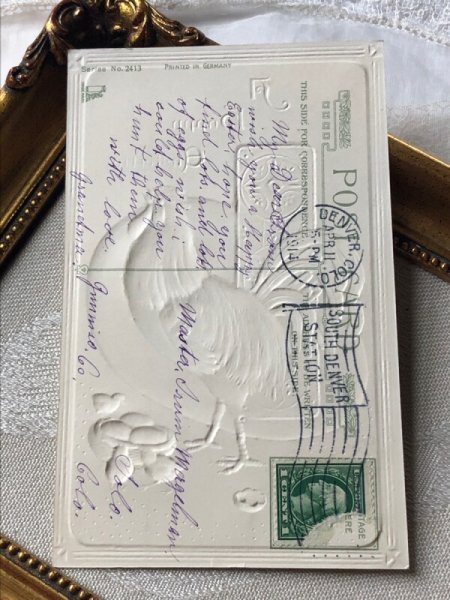 Series No. 2413
PRINTED IN GERMANY
POST CARD
THIS SIDE FOR CORRESPONDENCE
THE ADDRESS TO BE WRITTEN
ON THIS SIDE
DENVER,
APR 11
5-PM
1914
SOUTH DENVER
STATION
My Dear
wish you a Happy
Easter. hope you
find lots and lots
of eggs. wish i
could help you
hunt them
with love.
Grandma
Master
Co,
Colo.
1 CENT 1